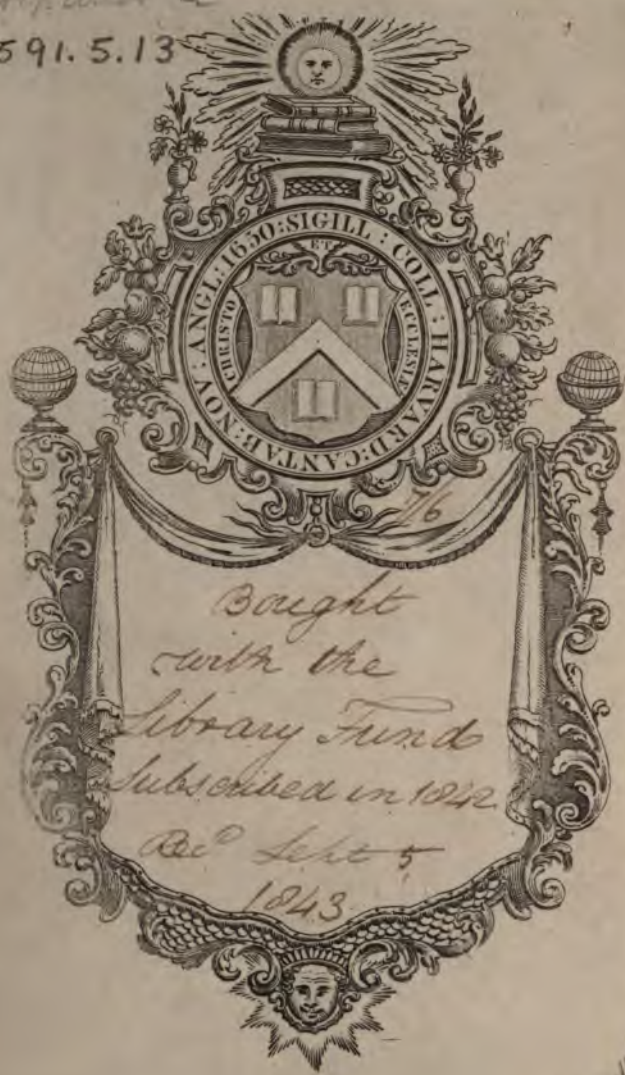 591.5.13
SIGILL : COLL : HARVARD : CANTAB : NOV : ANGL : 1650 :
CHRISTO ET ECCLESIÆ
7/6
Bought
with the
Library Fund
Subscribed in 1842
Recd Sept 5
1843.